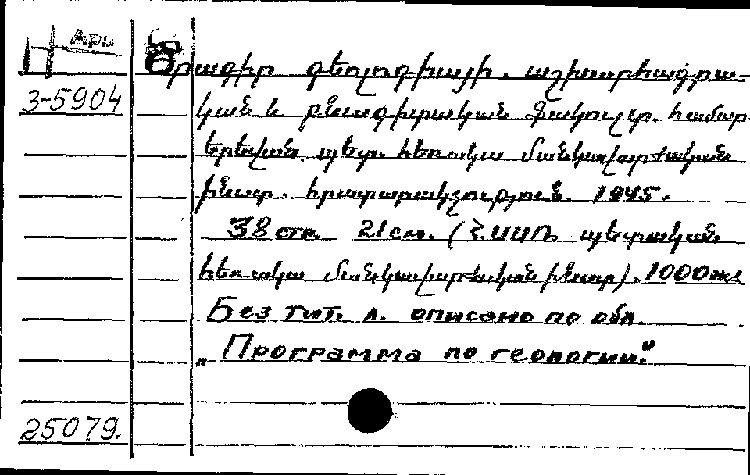 Арм
3-5904
Ծրագիր գեոլոգիայի. աշխարհագրա-
կան և բնագիտական ֆակուլտ. համար
Երևան պետ. հեռակա մանկավարժական
ինստ. հրատարակչություն. 1945.
38 стр. 21 см. (Հ.ՍՍՌ պետական
հեռակա մանկավարժական ինստ). 1000 экз
Без тит. л. описано по обл.
„Программа по геологии."
25079.